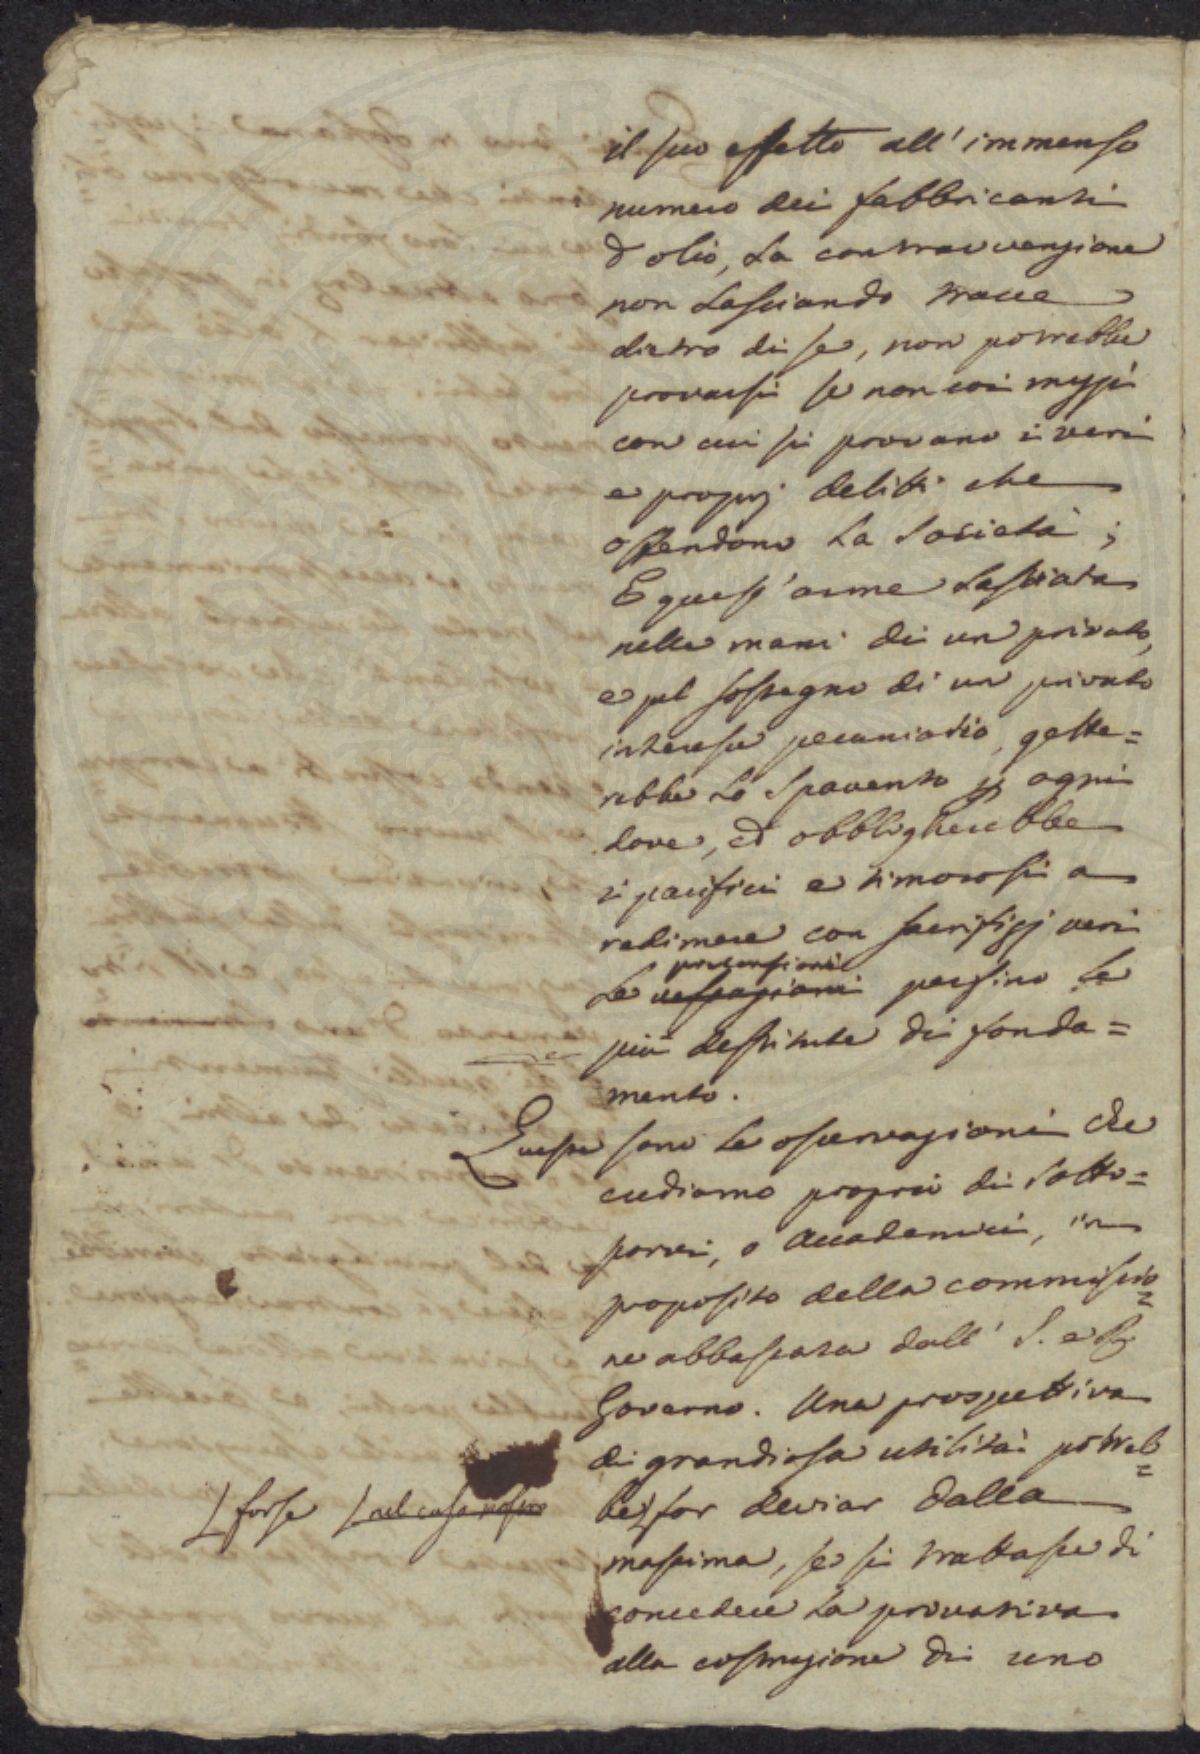 il suo effetto all' immenso
numero dei fabbricanti
d'olio, La contravvenzione
non Lasciando tracce
dietro di se, non potrebbe
provarsi se non coi mezzi
con cui si provano i veri
e proprj delitti che
offendono La Società;
E quest'arme Lasciata
nelle mani di un privato,
e pel sostegno di un privato
interesse pecuniario, gette=
rebbe Lo Spavento p ogni
dove, ed obbligherebbe
i pacifici e timorosi a
redimere con sacrifizj veri
pretensioni
Le vessazioni persino Le
più destitute di fonda=
mento.
Queste sono Le osservazioni che
crediamo proprie di Sotto=
porvi, o Accademici, in
proposito della commissio=
ne abbassata dall' I. e R.
Governo. Una prospettiva
di grandiosa utilità potreb=
be far deviar dalla
forse nel caso nostro
massima, se si trattasse di
concedere La privativa
alla costruzione di uno